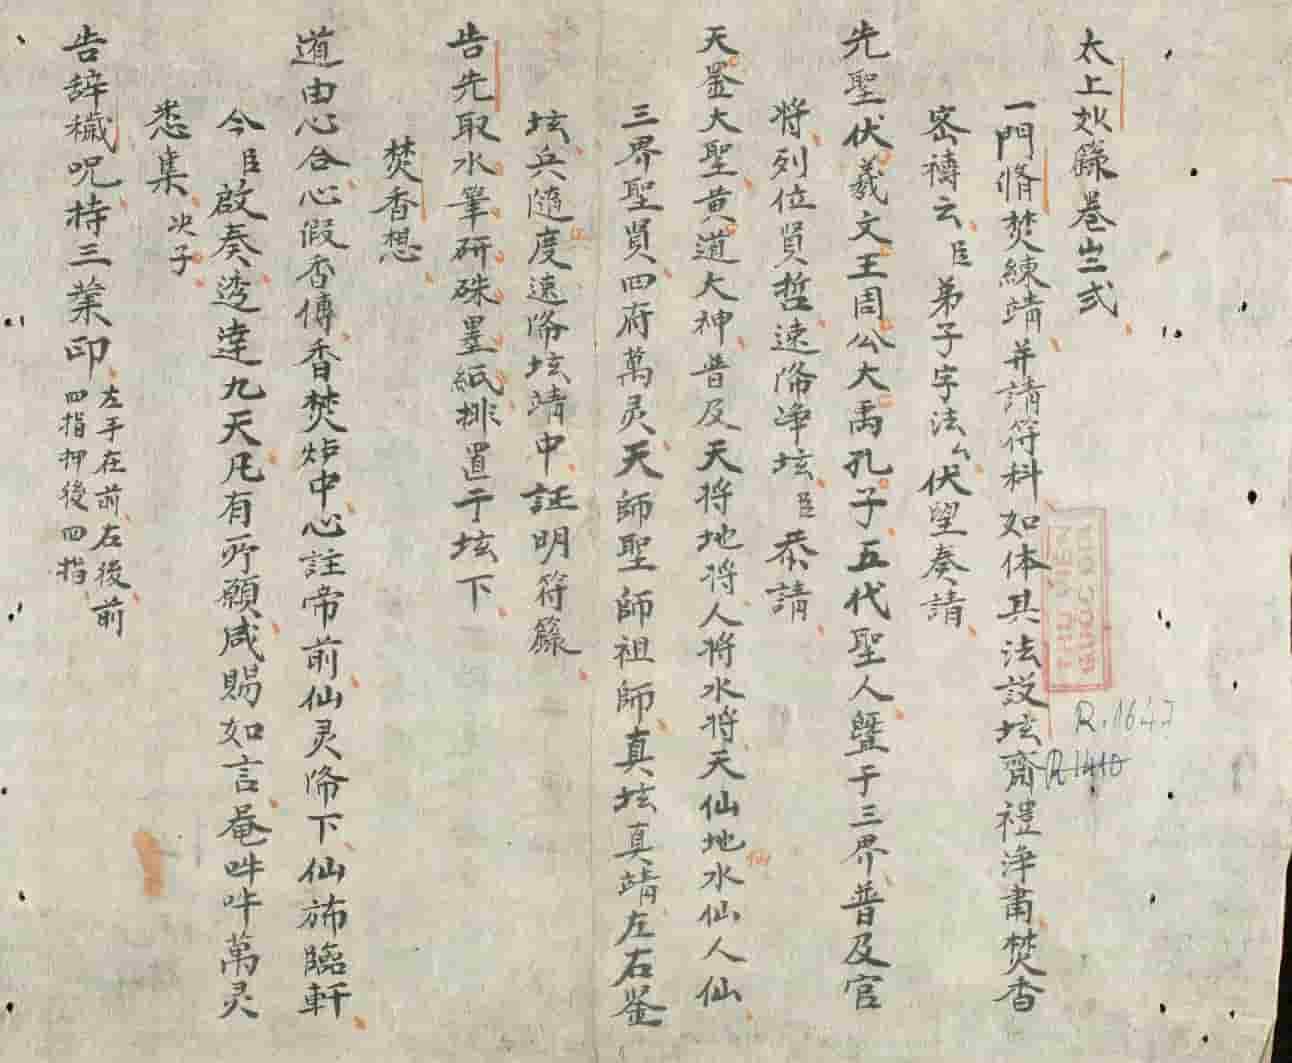 太上
籙卷
弍
一門脩焚練靖并請符科如体具法設坛齋禮净肅焚香
密禱云臣弟子字法ム伏望奏請
先聖伏羲文王周公大禹孔子五代聖人曁于三界普及官
将列位賢哲速降净坛臣恭請
天罡大聖黄道大神普及天将地将人将水将天仙地水仙人仙
仙
三界聖賢四府萬灵天師聖師祖師真坛真靖左右鉴
坛兵隨度速降坛靖中証明符籙
告先取水筆研硃墨紙排置于坛下
焚香想
道由心合心假香傳香焚炉中心註帝前仙灵降下仙斾臨軒
今臣啟奏透達九天凡有所願咸賜如言奄吽吽萬灵
悉集次子
告辞穢呪持三業印左手在前右後前
四指押後四指
THU VIEN
R.1647
R 1410